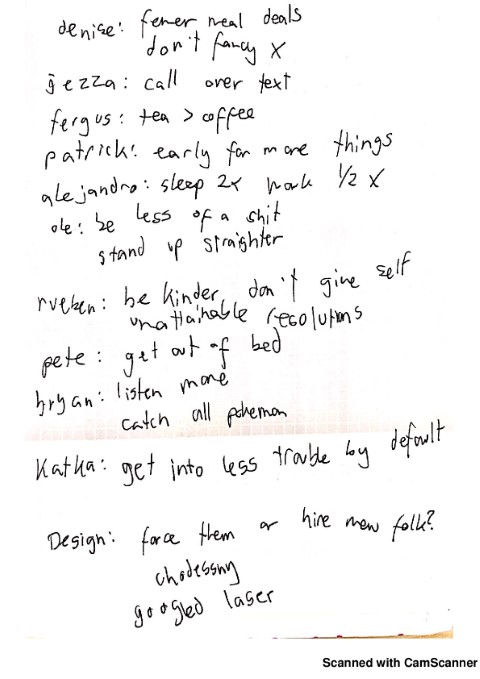 denise: fewer meal deals
don't fancy X
jezza: call over text
fergus: tea > coffee
patrick: early for more things
alejandro: sleep 2x work 1/2 x
ole: be less of a shit
stand up straighter
rueben: be kinder, don't give self
unattainable resolutions
pete: get out of bed
bryan: listen more
catch all pokemon
Katka: get into less trouble by default
Design: force them or hire new folk?
googled laser
Scanned with CamScanner